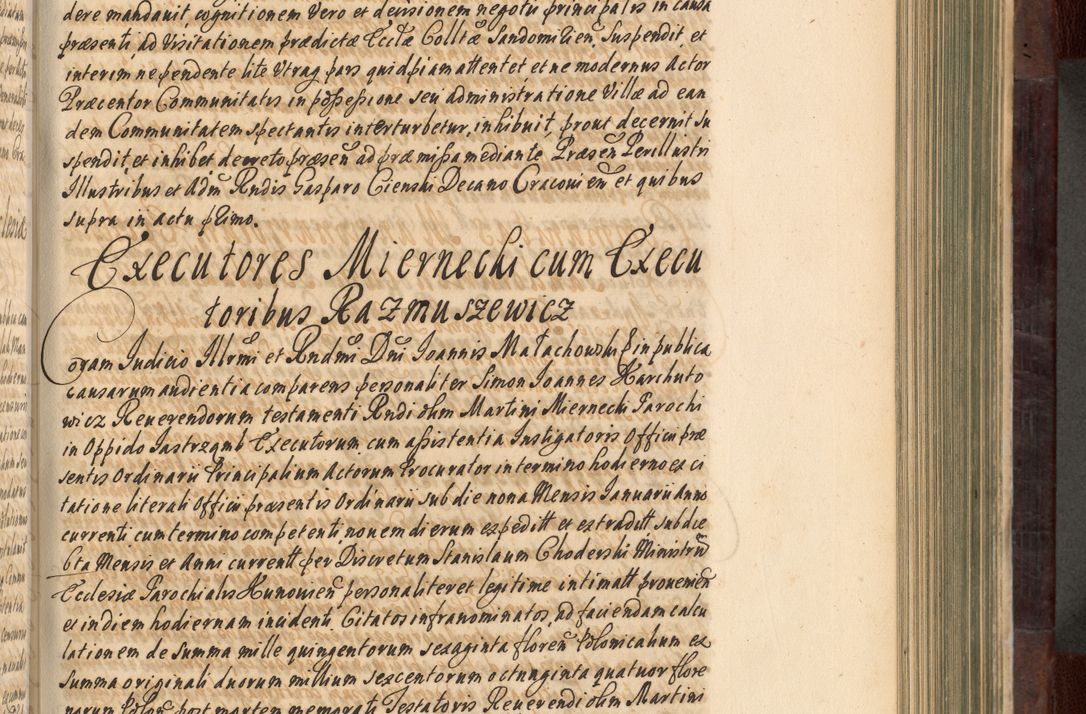 dere mandavit, cognitionem vero et decisionem negotii principalis in causa
præsenti, ad Visitationem prædictæ Ecclæ Colltæ Sandomirien, Suspendit, et
interim ne pendente lite Utraq pars quidpiam attentet et ne modernus Actor
Præcentor Communitatis in possessione seu administratione Villæ ad ean
dem Communitatem spectantis interturbetur, inhibuit, prout decernit su
spendit, et inhibet decreto præsen ad præmissa mediante. Præsen Perillustri
Illustribus et Adm Rndis Gasparo Cienski Decano Cracovien et quibus
supra in actu pximo.
Executores Miernecki cum Execu
toribus Razmuszewicz
Coram Judicio Illrmi et Rndmi Dni Joannis Małachowski E in publica
causarum audientia comparens personaliter Simon Joannes Karchuto
wicz Reverendorum testamenti Rndi olim Martini Miernecki Parochi
in Oppido Jastrząmb Executorum cum assistentia Instigatoris Officii præ
sentis Ordinarii Principalium Actorum Procurator in termino hodierno ex ci
tatione literali Officii præsentis Ordinarii sub die nona Mensis Januarii Anno
currenti cum termino competenti novem dierum expeditt et extraditt sub die
6ta Mensis et Anni currentt per Discretum Stanislaum Choderski Ministrum
Ecclesiæ Parochialis Kunovien personaliter et legitime intimatt provenien
et in diem hodiernam incidenti. Citatos infranominatos, ad faciendam calcu
lationem de summa mille quingentorum sexaginta floren Polonicalium ex
summa originali duorum millium sexcentorum octuaginta quatuor flore
norum Polon post mortem memorati Testatoris Reverendi olim Martini